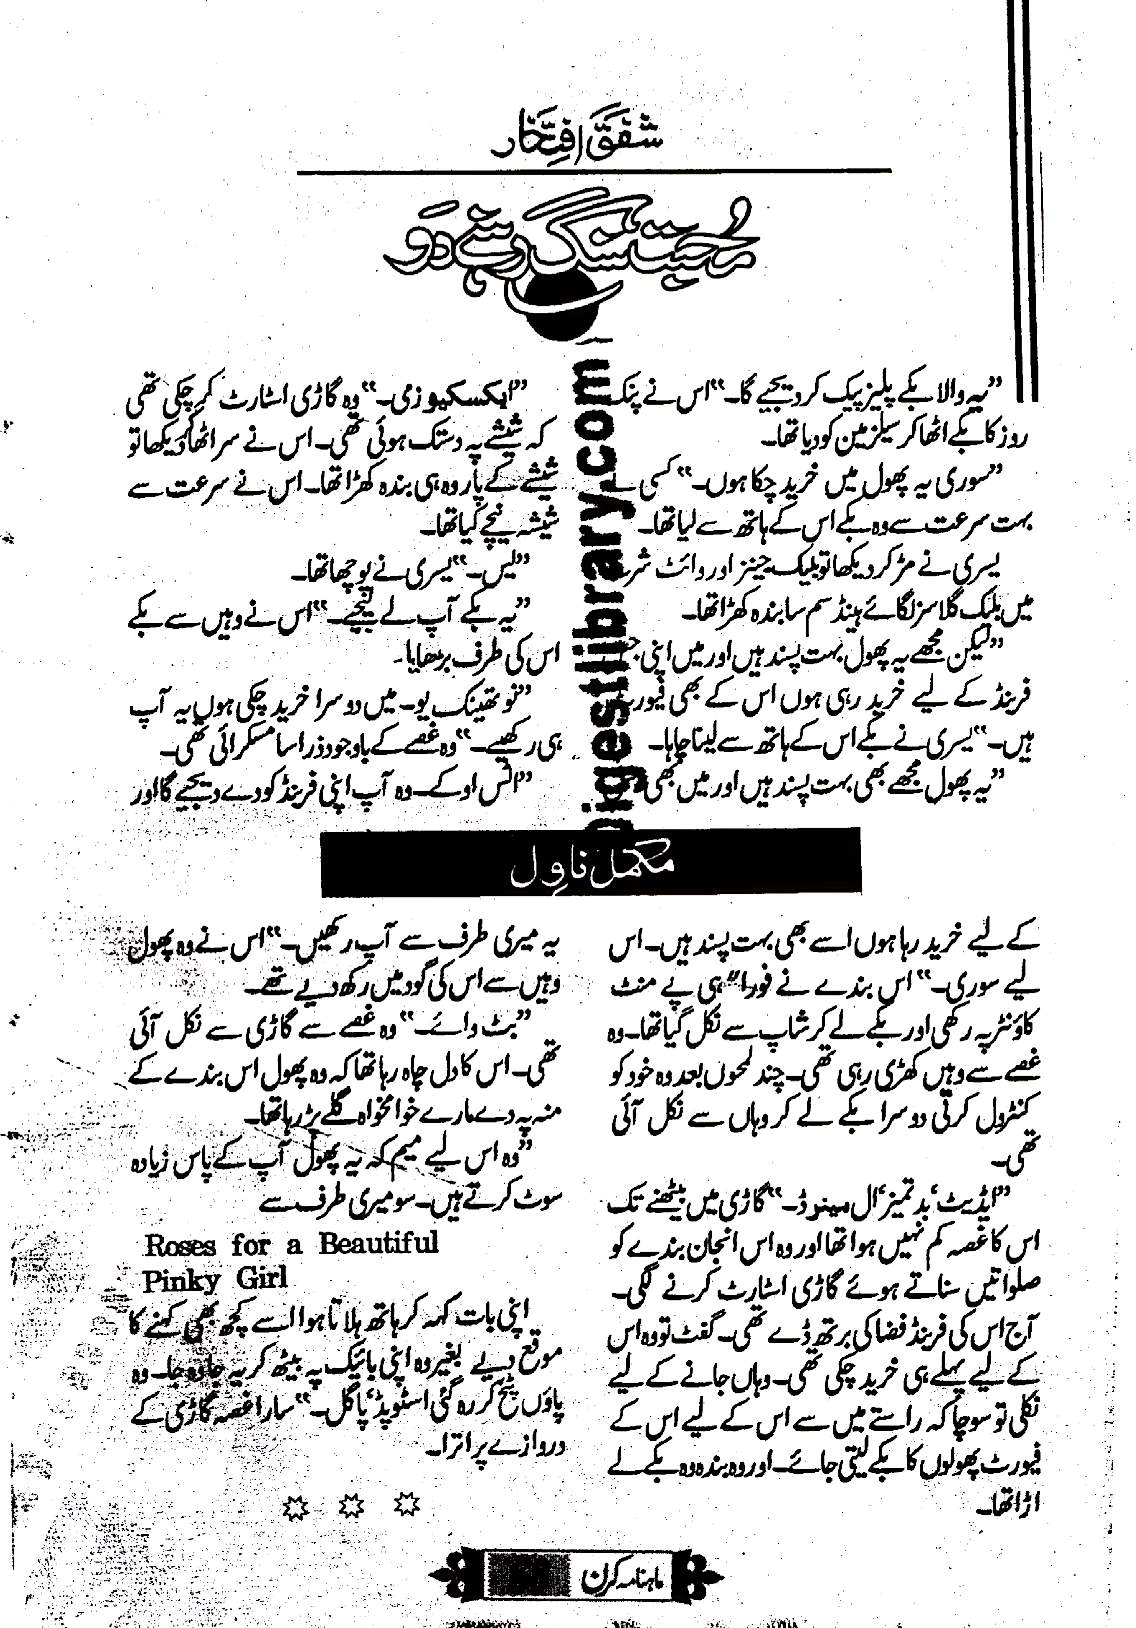 شفق افتخار
محبت سنگ رہنے دو
”یہ والا بکے پلیز پیک کر دیجیے گا۔“ اس نے پنک
روز کا بکے اٹھا کر سیلز مین کو دیا تھا۔
”سوری یہ پھول میں خرید چکا ہوں۔“ کسی نے
بہت سرعت سے وہ بکے اس کے ہاتھ سے لیا تھا۔
یسریٰ نے مڑ کر دیکھا تو بلیک جینز اور وائٹ شرٹ
میں بلیک گلاسز لگائے ہینڈسم سا بندہ کھڑا تھا۔
”لیکن مجھے یہ پھول بہت پسند ہیں اور میں اپنی جس
فرینڈ کے لیے خرید رہی ہوں اس کے بھی فیورٹ
ہیں۔“ یسریٰ نے بکے اس کے ہاتھ سے لینا چاہا۔
”یہ پھول مجھے بھی بہت پسند ہیں اور میں بھی
مکمل ناول
کے لیے خرید رہا ہوں اسے بھی بہت پسند ہیں۔ اس
لیے سوری۔“ اس بندے نے فوراً“ ہی پے منٹ
کاؤنٹر پہ رکھی اور بکے لے کر شاپ سے نکل گیا تھا۔ وہ
غصے سے وہیں کھڑی رہی تھی۔ چند لمحوں بعد وہ خود کو
کنٹرول کرتی دوسرا بکے لے کر وہاں سے نکل آئی
تھی۔
”ایڈیٹ‘ بدتمیز‘ ال مینرڈ۔“ گاڑی میں بیٹھنے تک
اس کا غصہ کم نہیں ہوا تھا اور وہ اس انجان بندے کو
صلواتیں سناتے ہوئے گاڑی اسٹارٹ کرنے لگی۔
آج اس کی فرینڈ فضا کی برتھ ڈے تھی۔ گفٹ تو وہ اس
کے لیے پہلے ہی خرید چکی تھی۔ وہاں جانے کے لیے
نکلی تو سوچا کہ راستے میں سے اس کے لیے اس کے
فیورٹ پھولوں کا بکے لیتی جائے۔ اور وہ بندہ وہ بکے لے
اڑا تھا۔
”ایکسکیوزمی۔“ وہ گاڑی اسٹارٹ کر چکی تھی
کہ شیشے پہ دستک ہوئی تھی۔ اس نے سر اٹھا کر دیکھا تو
شیشے کے پار وہ ہی بندہ کھڑا تھا۔ اس نے سرعت سے
شیشہ نیچے کیا تھا۔
”یس۔“ یسریٰ نے پوچھا تھا۔
”یہ بکے آپ لے لیجیے۔“ اس نے وہیں سے بکے
اس کی طرف بڑھایا۔
”نو تھینک یو۔ میں دوسرا خرید چکی ہوں یہ آپ
ہی رکھیے۔“ وہ غصے کے باوجود ذرا سا مسکرائی تھی۔
”اٹس اوکے۔ وہ آپ اپنی فرینڈ کو دے دیجیے گا اور
یہ میری طرف سے آپ رکھیں۔“ اس نے وہ پھول
وہیں سے اس کی گود میں رکھ دیے تھے۔
”بٹ وائے۔“ وہ غصے سے گاڑی سے نکل آئی
تھی۔ اس کا دل چاہ رہا تھا کہ وہ پھول اس بندے کے
منہ پہ دے مارے خوامخواہ گلے پڑ رہا تھا۔
”وہ اس لیے میم کہ یہ پھول آپ کے پاس زیادہ
سوٹ کرتے ہیں۔ سو میری طرف سے
Roses for a Beautiful
Pinky Girl
اپنی بات کہہ کر ہاتھ ہلاتا ہوا اسے کچھ بھی کہنے کا
موقع دیے بغیر وہ اپنی بائیک پہ بیٹھ کر یہ جا وہ جا۔ وہ
پاؤں پٹخ کر رہ گئی اسٹوپڈ‘ پاگل۔“ سارا غصہ گاڑی کے
دروازے پر اترا۔
ماہنامہ کرن
igestlibrary.com